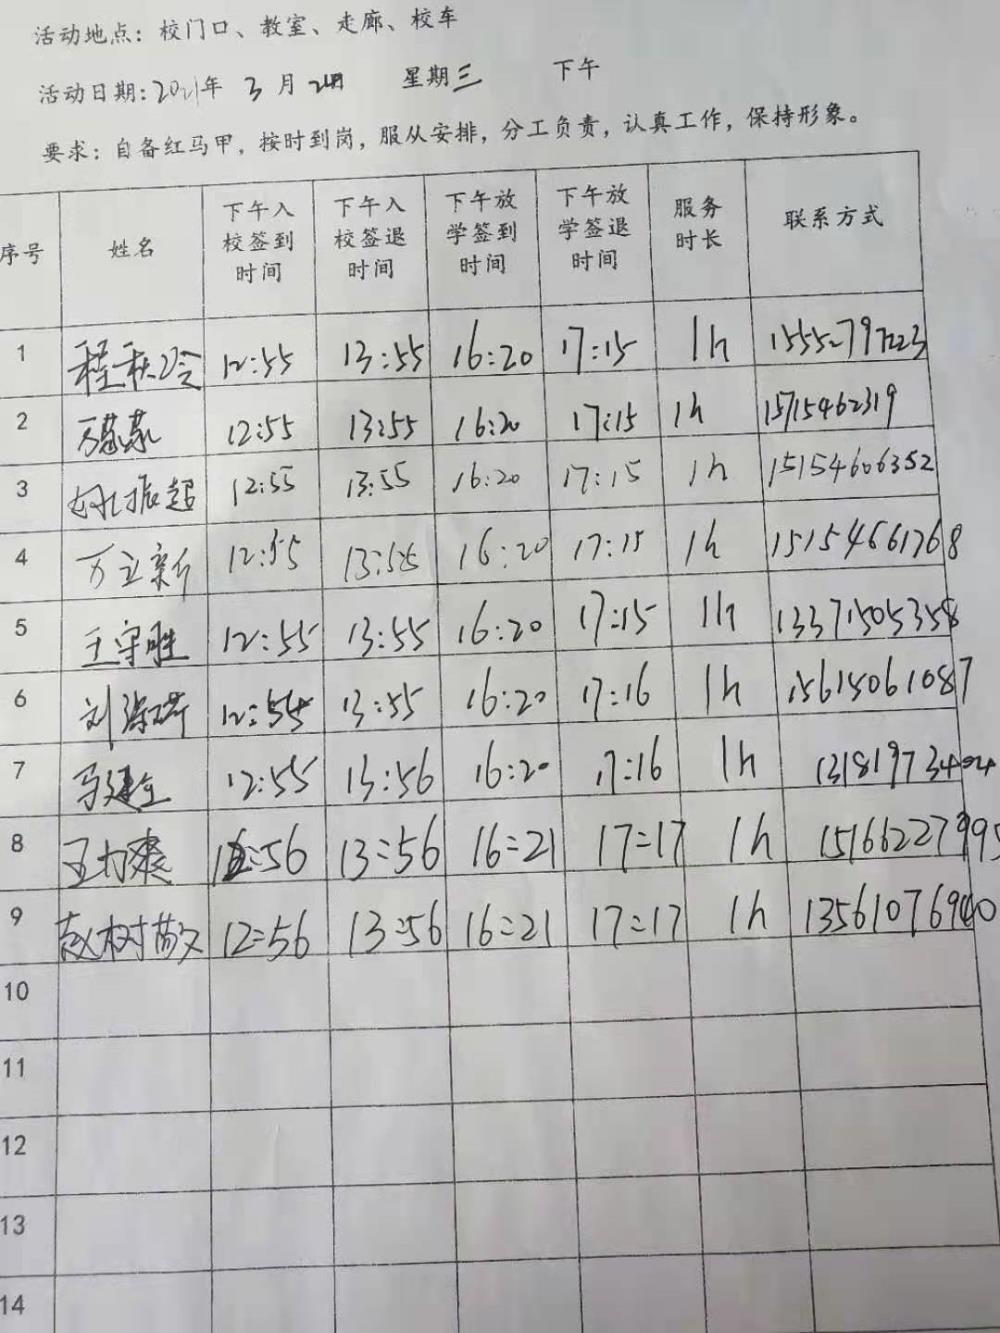 活动地点：校门口、教室、走廊、校车
活动日期：2021年 3月24日 星期三 下午
要求：自备红马甲，按时到岗，服从安排，分工负责，认真工作，保持形象。
序号 姓名 下午入校签到时间 下午入校签退时间 下午放学签到时间 下午放学签退时间 服务时长 联系方式
1 程秋冷 12:55 13:55 16:20 17:15 1h 15552797223
2 万慕慕 12:55 13:55 16:20 17:15 1h 15715462319
3 振超 12:55 13:55 16:20 17:15 1h 15154606352
4 万立新 12:55 13:55 16:20 17:15 1h 15154661768
5 王守胜 12:55 13:55 16:20 17:15 1h 13371505358
6 刘 12:55 13:55 16:20 17:16 1h 15615061087
7 马建全 12:55 13:56 16:20 17:16 1h 131819734
8 王力爽 12:56 13:56 16:21 17:17 1h 15166227995
9 赵树敬 12:56 13:56 16:21 17:17 1h 13561076940
10
11
12
13
14